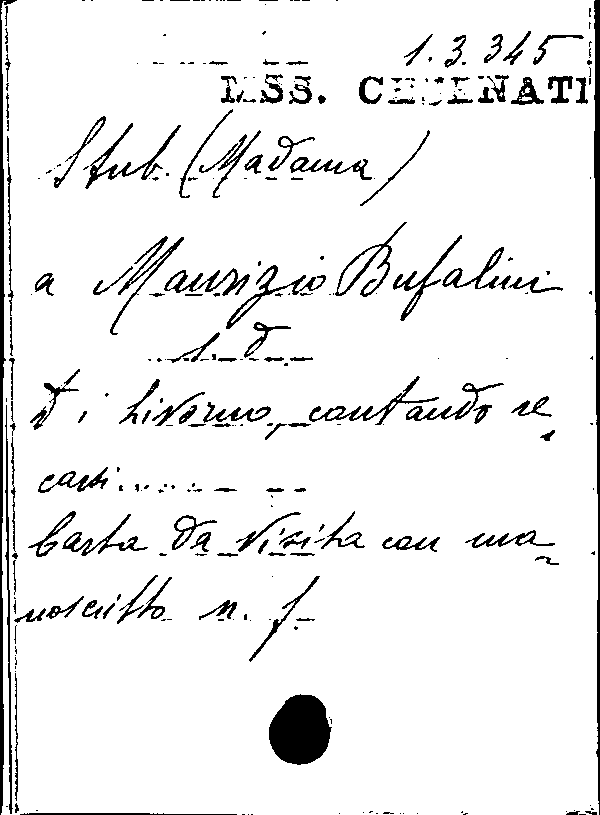 1.3.345
MSS. CESENATI
Stub. (Madama)
a Maurizio Bufalini
s. d.
Di Livorno, contando re
carsi......
Carta da visita con ma
noscritto n. f.